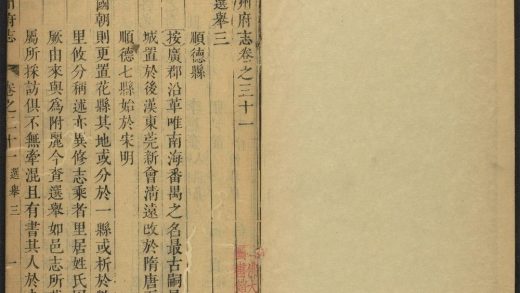 州府志卷之三十一
選舉三
順德縣
按廣郡沿革唯南海番禺之名最古嗣是
城置於後漢東莞新會清遠改於隋唐
順德七縣始於宋明
國朝則更置花縣其地或分於一縣或析於
里攸分稱述亦異修志乘者里居姓氏
厥由來與為附麗今查選舉如邑志所
屬所採訪俱不無牽混且有書其人於
府志 卷之三十一 選舉三 一